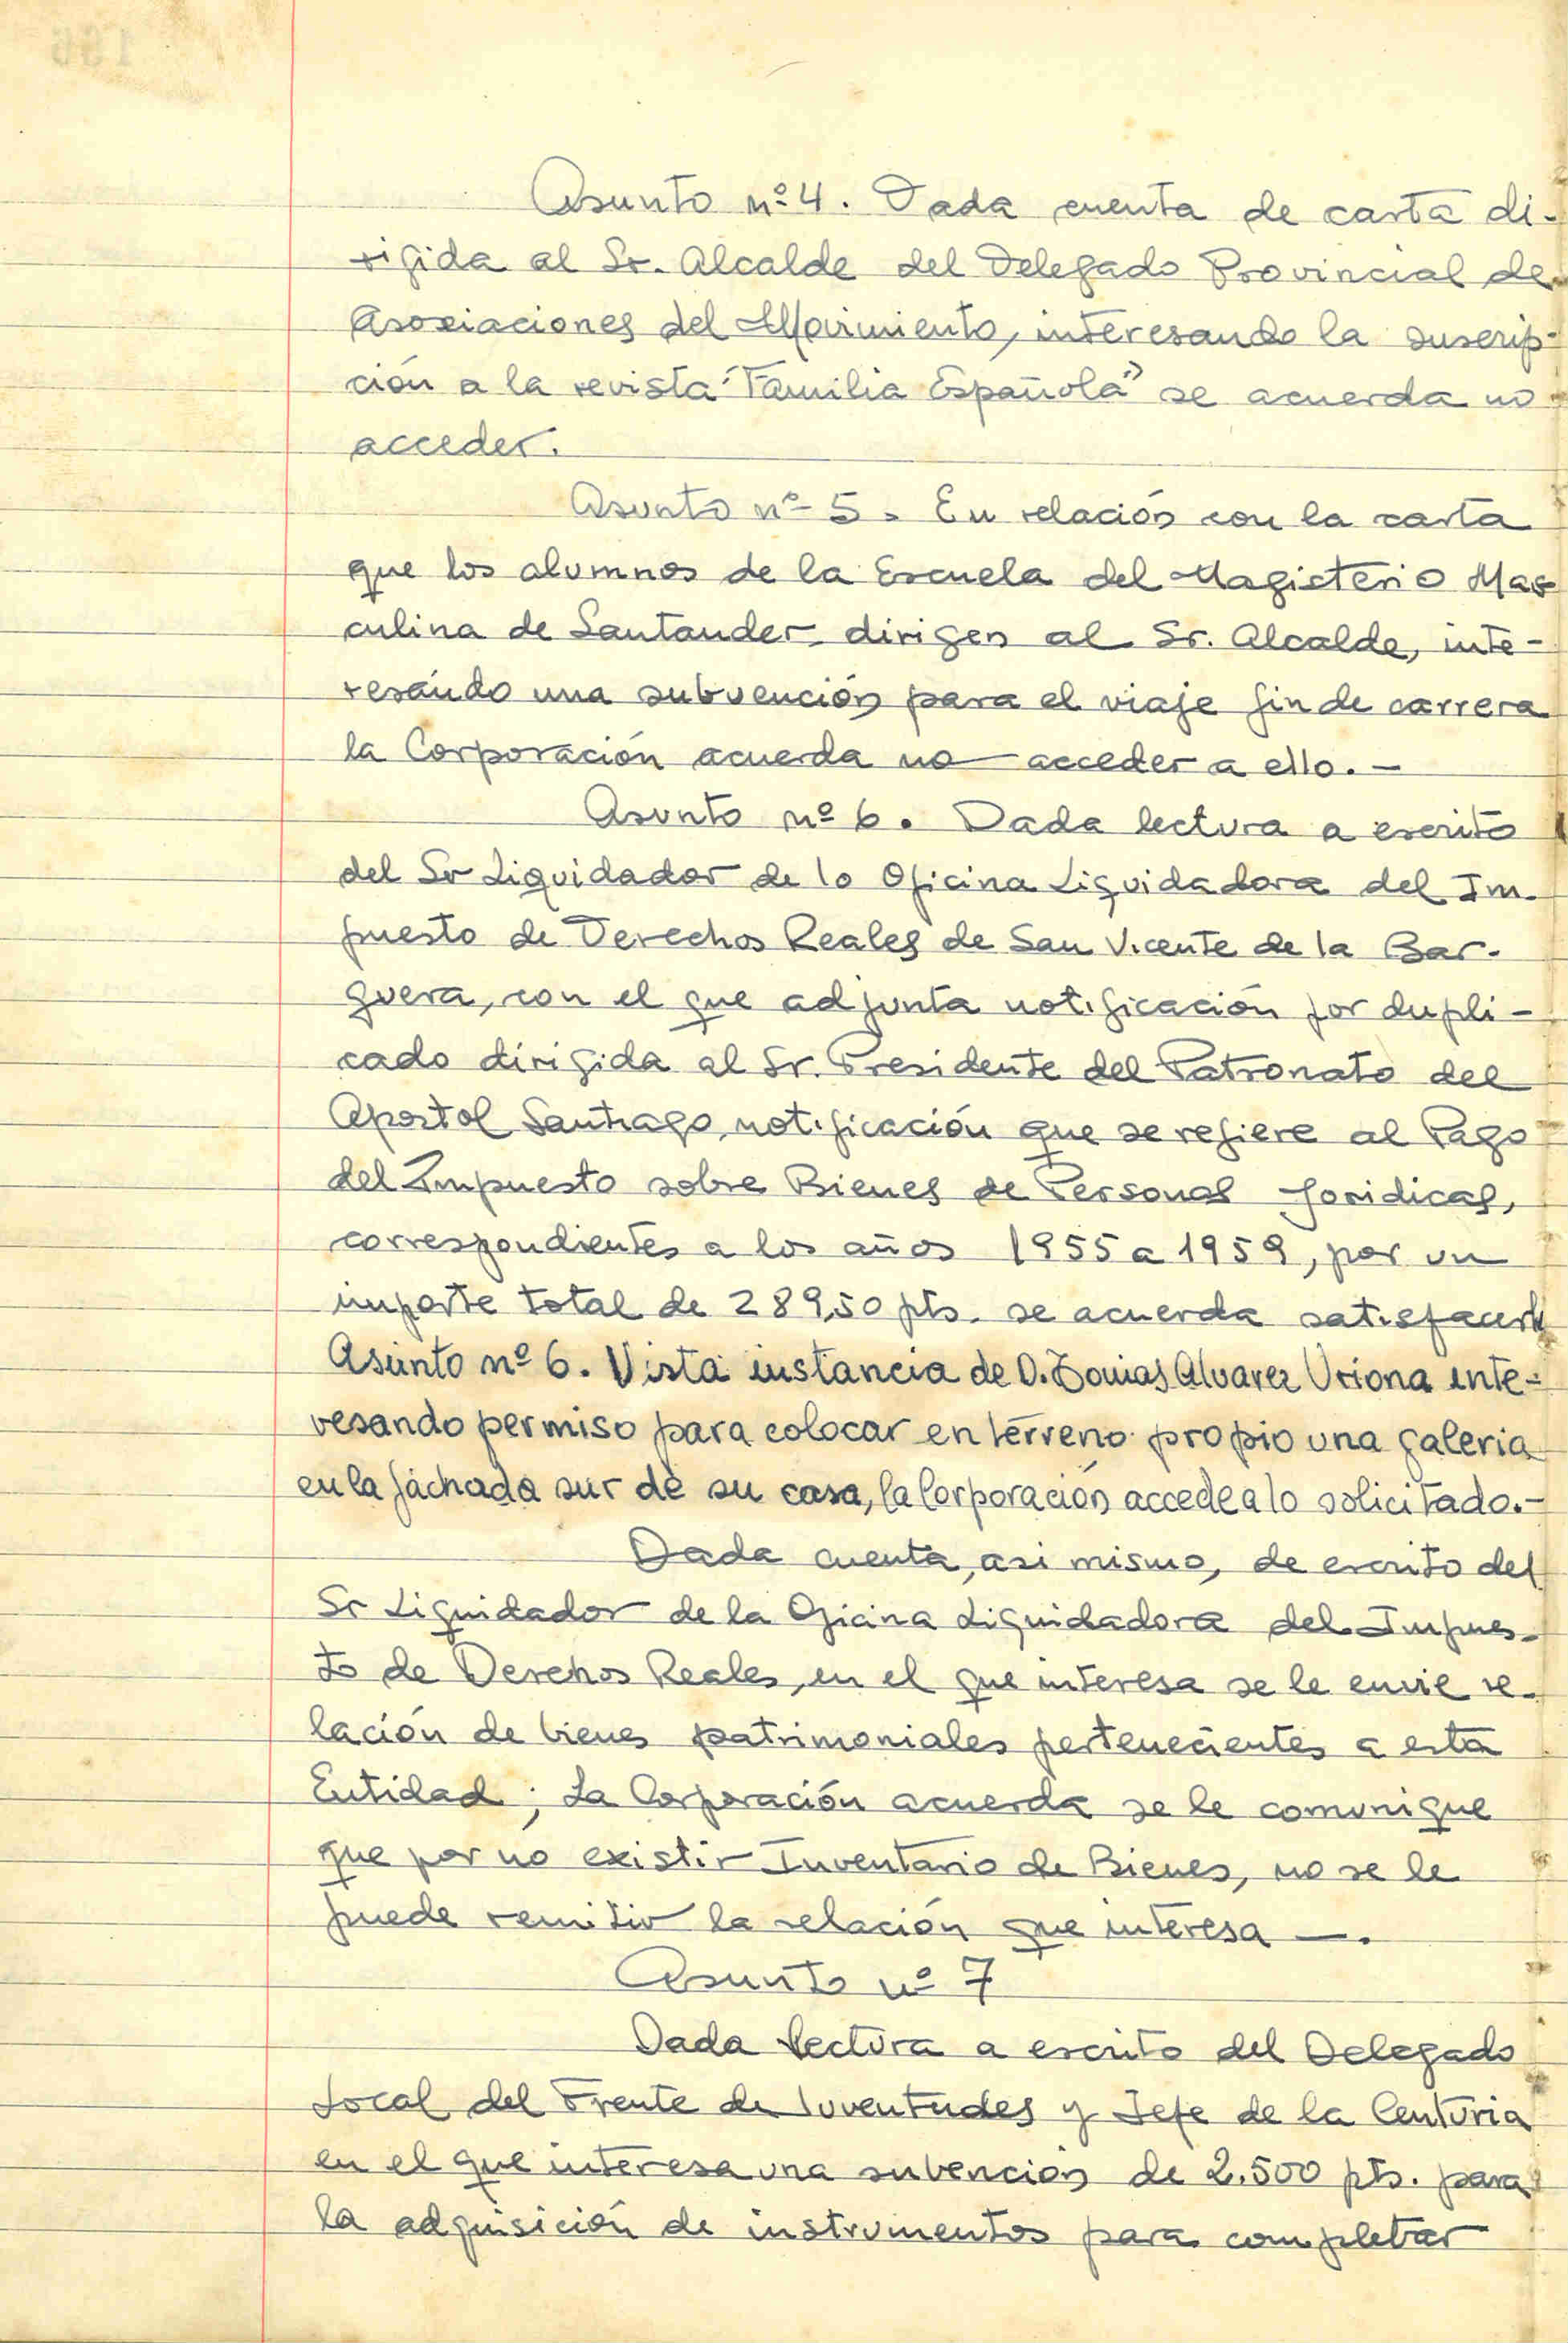 Asunto nº 4. Dada cuenta de carta di-
rigida al Sr. Alcalde del Delegado Provincial de
Asociaciones del Movimiento, interesando la suscrip-
ción a la revista "Familia Española" se acuerda no
acceder.
Asunto nº 5. En relación con la carta
que los alumnos de la Escuela del Magisterio Mas
culina de Santander dirigen al Sr. Alcalde, inte-
resando una subvención para el viaje fin de carrera
la Corporación acuerda no acceder a ello. -
Asunto nº 6. Dada lectura a escrito
del Sr Liquidador de la Oficina Liquidadora del Im-
puesto de Derechos Reales de San Vicente de la Bar-
quera, con el que adjunta notificación por dupli-
cado dirigida al Sr. Presidente del Patronato del
Apostol Santiago, notificación que se refiere al Pago
del Impuesto sobre Bienes de Personas Joridicas,
correspondientes a los años 1955 a 1959, por un
importe total de 289,50 pts. se acuerda satisfacerle
Asunto nº 6. Vista instancia de D. Tomas Alvarez Uriona inte-
resando permiso para colocar en terreno propio una galeria
en la fachada sur de su casa, la Corporación accede a lo solicitado.-
Dada cuenta, asi mismo, de escrito del
Sr Liquidador de la Oficina Liquidadora del Impues-
to de Derechos Reales, en el que interesa se le envie re-
lación de bienes patrimoniales pertenecientes a esta
Entidad; La Corporación acuerda se le comunique
que por no existir Inventario de Bienes, no se le
puede remitir la relación que interesa —.
Asunto nº 7
Dada lectura a escrito del Delegado
Local del Frente de Juventudes y Jefe de la Centuria
en el que interesa una subención de 2.500 pts. para
la adquisición de instrumentos para completar